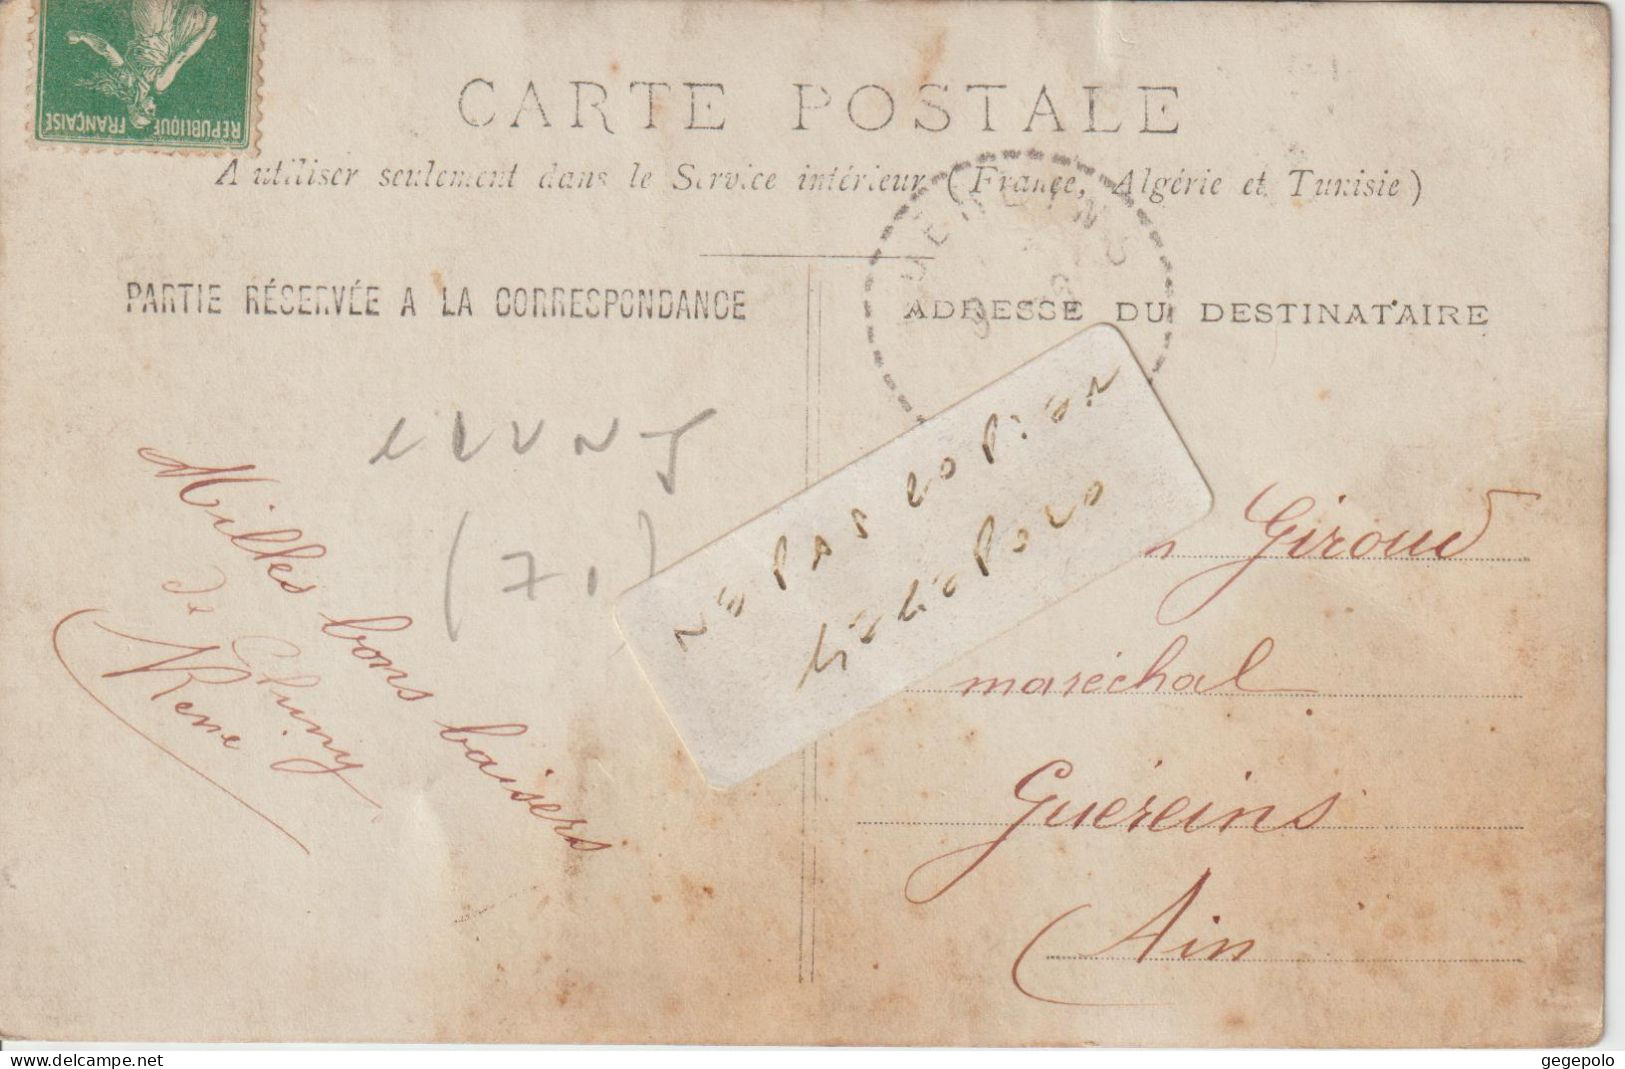 RÉPUBLIQUE FRANÇAISE
CARTE POSTALE
A utiliser seulement dans le Service intérieur (France, Algérie et Tunisie)
PARTIE RÉSERVÉE A LA CORRESPONDANCE
CLUNY
(71)
Milles bons baisers
de Cluny
René
ADRESSE DU DESTINATAIRE
NE PAS COPIER
GéGéPOLO
Giroud
maréchal
Guéreins
Ain
www.delcampe.net
gegepolo